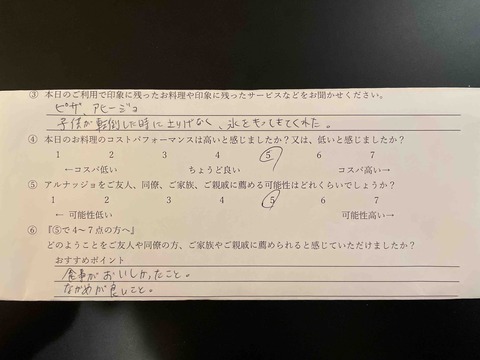 ③ 本日のご利用で印象に残ったお料理や印象に残ったサービスなどをお聞かせください。
ピザ、アヒージョ
子供が転倒した時にさりげなく、氷をもってきてくれた。
④ 本日のお料理のコストパフォーマンスは高いと感じましたか?又は、低いと感じましたか?
1 2 3 4 5 6 7
←コスパ低い ちょうど良い コスパ高い→
⑤ アルナッジョをご友人、同僚、ご家族、ご親戚に薦める可能性はどれくらいでしょうか?
1 2 3 4 5 6 7
← 可能性低い 可能性高い→
⑥ 『⑤で4～7点の方へ』
どのようなことをご友人や同僚の方、ご家族やご親戚に薦められると感じていただけましたか?
おすすめポイント
食事がおいしかったこと。
ながめが良いこと。